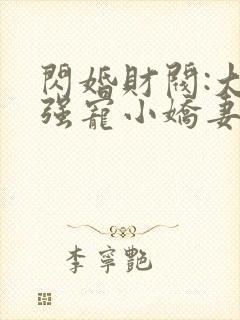 閃婚財閥:大
强寵小嬌妻
李寧艷